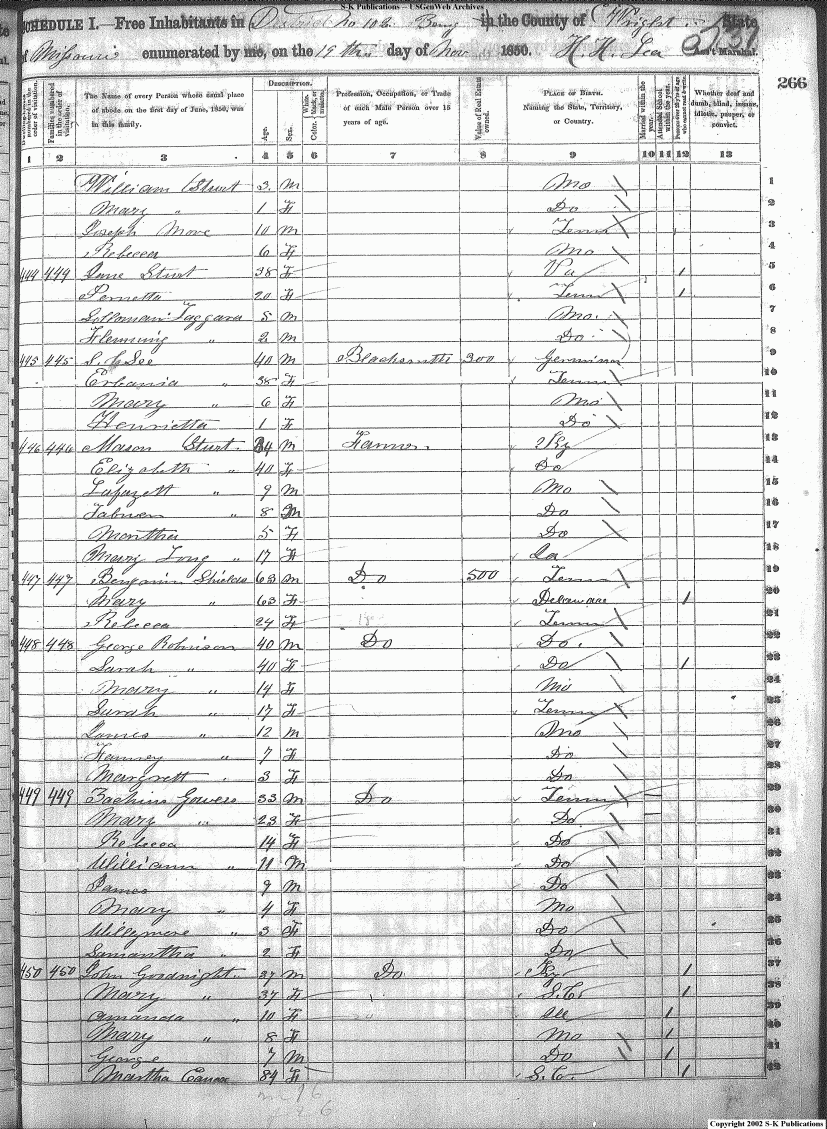 S-K Publications -- USGenWeb Archives
SCHEDULE I.—Free Inhabitants in District No 102 in the County of Wright State
of Missouri enumerated by me, on the 19th day of Nov 1850. H. H. Lea Ass't Marshal.
266
The Name of every Person whose usual place of abode on the first day of June, 1850, was in this family.
Description.
Age.
Sex.
Profession, Occupation, or Trade of each Male Person over 15 years of age.
Value of Real Estate owned.
Place of Birth. Naming the State, Territory, or Country.
Married within the year.
Attended School within the year.
Whether deaf and dumb, blind, insane, idiotic, pauper, or convict.
1 2 3 4 5 6 7 8 9 10 11 12 13
William Sturt 3 M Mo 1
Mary " 1 F Do 2
Joseph 10 M Tenn 3
Rebecca 6 F Mo 4
444 449 Jane Sturt 38 F Va 1 5
20 F Tenn 1 6
Solloman Taggara 5 M Mo 7
Flemming " 2 M Do 8
445 445 40 M Blacksmith 300 9
" 38 F Tenn 10
Mary " 6 F Mo 11
Henrietta 1 F Do 12
446 446 Mason Sturt M Farmer Ky 13
Elizabeth " 40 F Do 14
Lafazett " 9 M Mo 15
" 8 M Do 16
Marthia 5 F Do 17
Mary Long " 17 F 18
447 447 Benjamin Shields 63 M Do 500 Tenn 19
Mary " 63 F Delaware 1 20
Rebecca 24 F Tenn 21
448 448 George Robinson 40 M Do Do 22
Sarah " 40 F Do 1 23
Mary " 14 F Mo 24
Sarah " 17 F Tenn 25
James " 12 M Mo 26
Fanney " 7 F Do 27
Margrett 3 F Do 28
449 449 Gowers 33 M Do Tenn 29
Mary " 23 F Do 30
Rebecca 14 F Do 31
William " 11 M Do 32
James 9 M Do 33
Mary " 4 F Mo 34
" 3 F Do 35
Samantha " 2 F Do 36
450 450 John Goodnight 37 M Do Ky 1 37
Mary " 37 F S.C. 1 38
Amanda " 10 F 1 39
Mary " 8 F Mo 1 40
George 7 M Do 1 41
Martha 84 F S.C. 1 42
Copyright 2002 S-K Publications